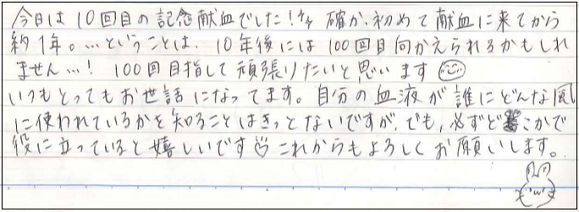 今日は10回目の記念献血でした！！確か、初めて献血に来てから
約1年。…ということは、10年後には100回目向かえられるかもしれ
ません…！100回目指して頑張りたいと思います
いつもとってもお世話になってます。自分の血液が誰にどんな風
に使われているかを知ることはきっとないですが、でも、必ずどこかで
役に立っていると嬉しいです これからもよろしくお願いします。